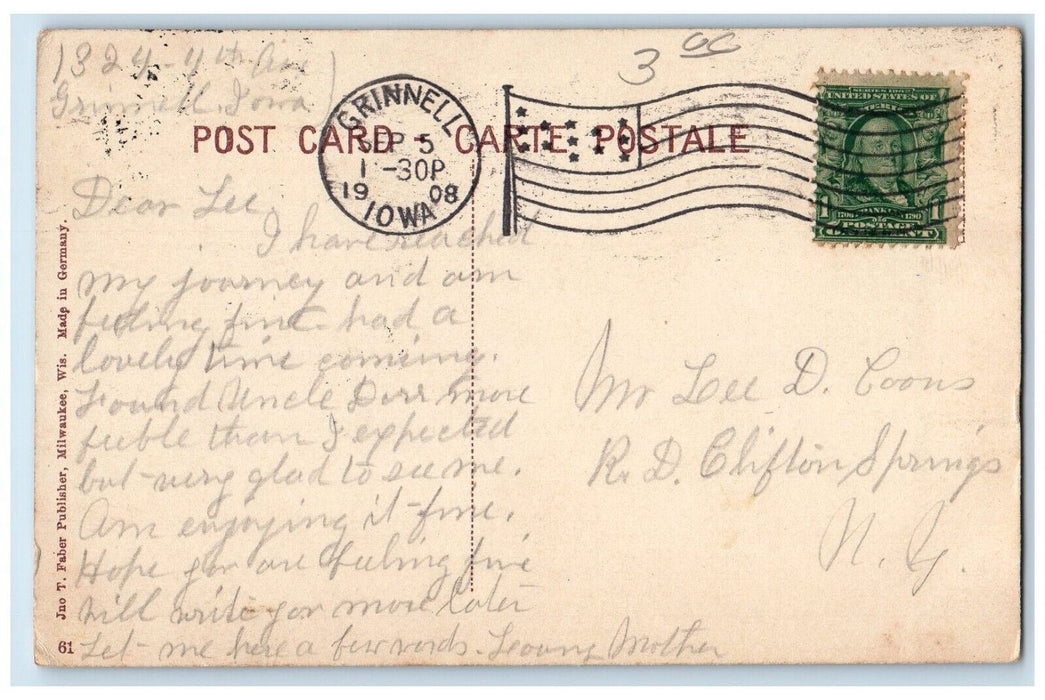 1324-4th Ave
Grinnell Iowa
3 00
POST CARD - CARTE POSTALE
GRINNELL
SEP 5
1-30P
1908
IOWA
SERIES 1902
UNITED STATES OF
1
1706 FRANKLIN 1790
POSTAGE
ONE CENT
Dear Lee,
I have reached
my journey and am
feeling fine. had a
lovely time coming.
Found Uncle more
feeble than I expected
but very glad to see me.
Am enjoying it fine.
Hope you are feeling fine
will write you more later
Let me here a few words. Loving Mother
Mr Lee D. Coons
R. D. Clifton Springs
N. Y.
Jno T. Faber Publisher, Milwaukee, Wis. Made in Germany.
61